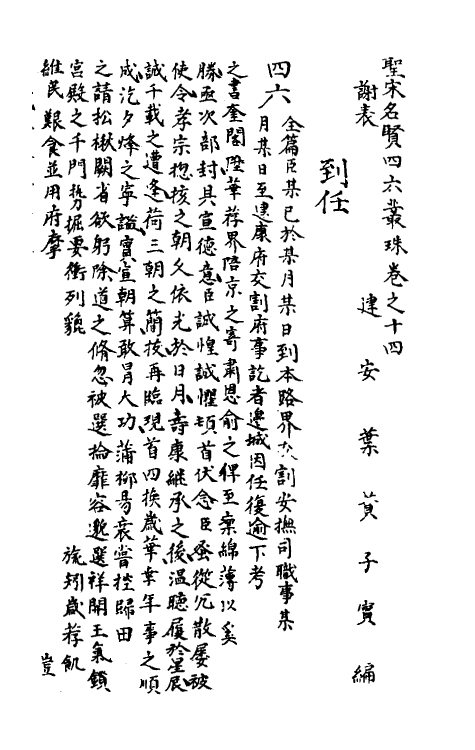 聖宋名賢四六叢珠卷之十四
建安葉蕡子實編
謝表
到任
四六
全篇臣某已於某月某日到本路界交割安撫司職事某
月某日至建康府交割府事訖者邊城因任復逾下考
之書奎閣陞華荐界陪京之寄肅恩俞之俾至稟綿薄以奚
勝亟次部封具宣德意臣誠惶誠懼頓首伏念臣蚤從冗散屡被
使令孝宗揔核之朝久依光於日月壽康継承之後温聴履於星辰
誠千載之遭逢荷三朝之簡拔再臨現首四换歳華幸年事之順
成汔夕烽之寧謐實宣朝算敢冒大功蒲柳昜衰嘗控歸田
之請松楸闕省欲躬除道之脩忽被選掄靡容遜選祥開王氣鎖
宮殿之千門㔟據要衝列貔
旄矧歳荐飢
維民艱食並用府摩
豈